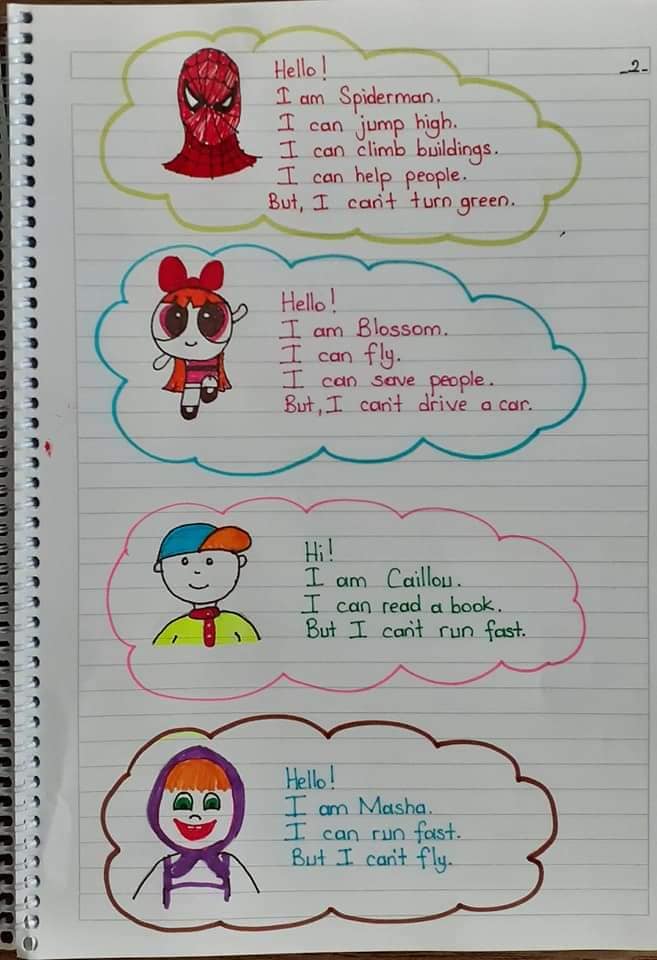 -2-
Hello!
I am Spiderman.
I can jump high.
I can climb buildings.
I can help people.
But, I can't turn green.
Hello!
I am Blossom.
I can fly.
I can save people.
But, I can't drive a car.
Hi!
I am Caillou.
I can read a book.
But I can't run fast.
Hello!
I am Masha.
I can run fast.
But I can't fly.